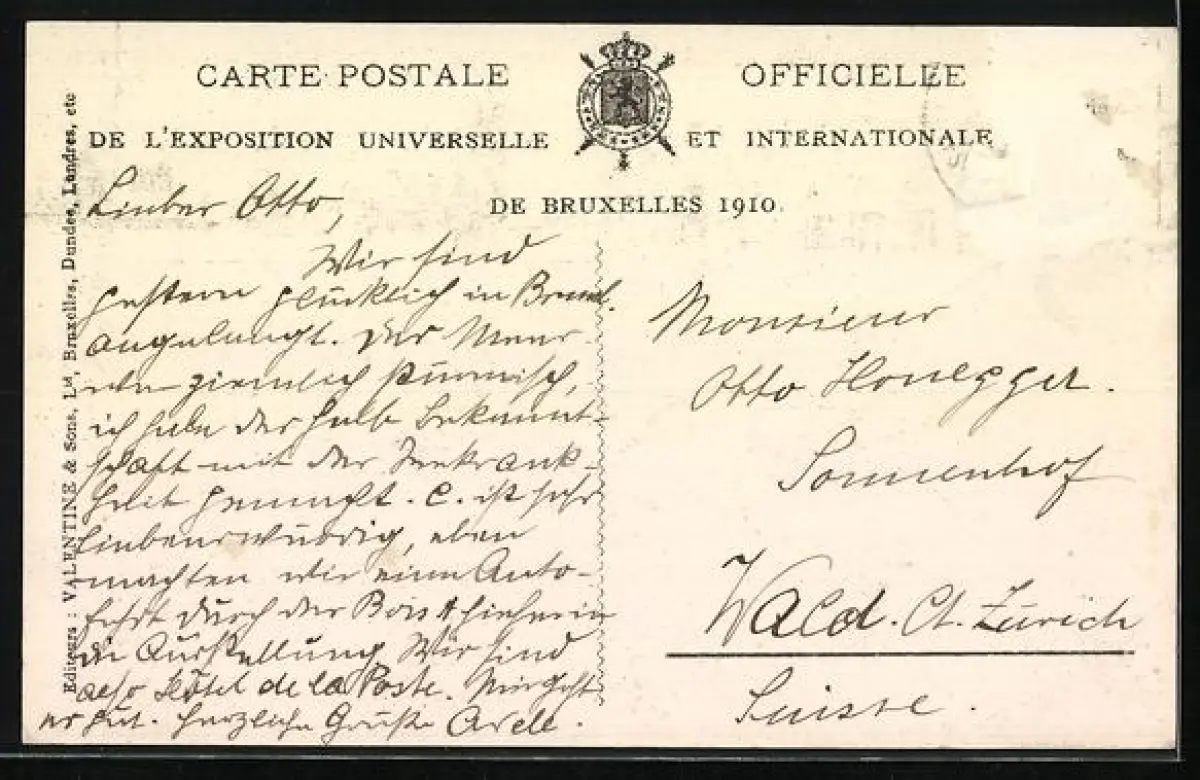 CARTE POSTALE OFFICIELLE
DE L'EXPOSITION UNIVERSELLE ET INTERNATIONALE
DE BRUXELLES 1910.
Editeurs : VALENTINE & Sons, Lᴅ, Bruxelles, Dundee, Londres, etc
Lieber Otto,
Wir sind
gestern glücklich in Brüssel.
angelangt. Das Meer
war ziemlich stürmisch,
ich habe deshalb Bekannt-
schaft mit der Seekrank-
heit gemacht. C. ist sehr
liebenswürdig, eben
machten wir eine Auto-
fahrt durch den Bois & hieher in
die Ausstellung. Wir sind
also Hôtel de la Poste. Mir geht
es gut. Herzliche Grüße
Monsieur
Otto Honegger.
Sonnenhof
Wald. Ct. Zürich
Suisse.